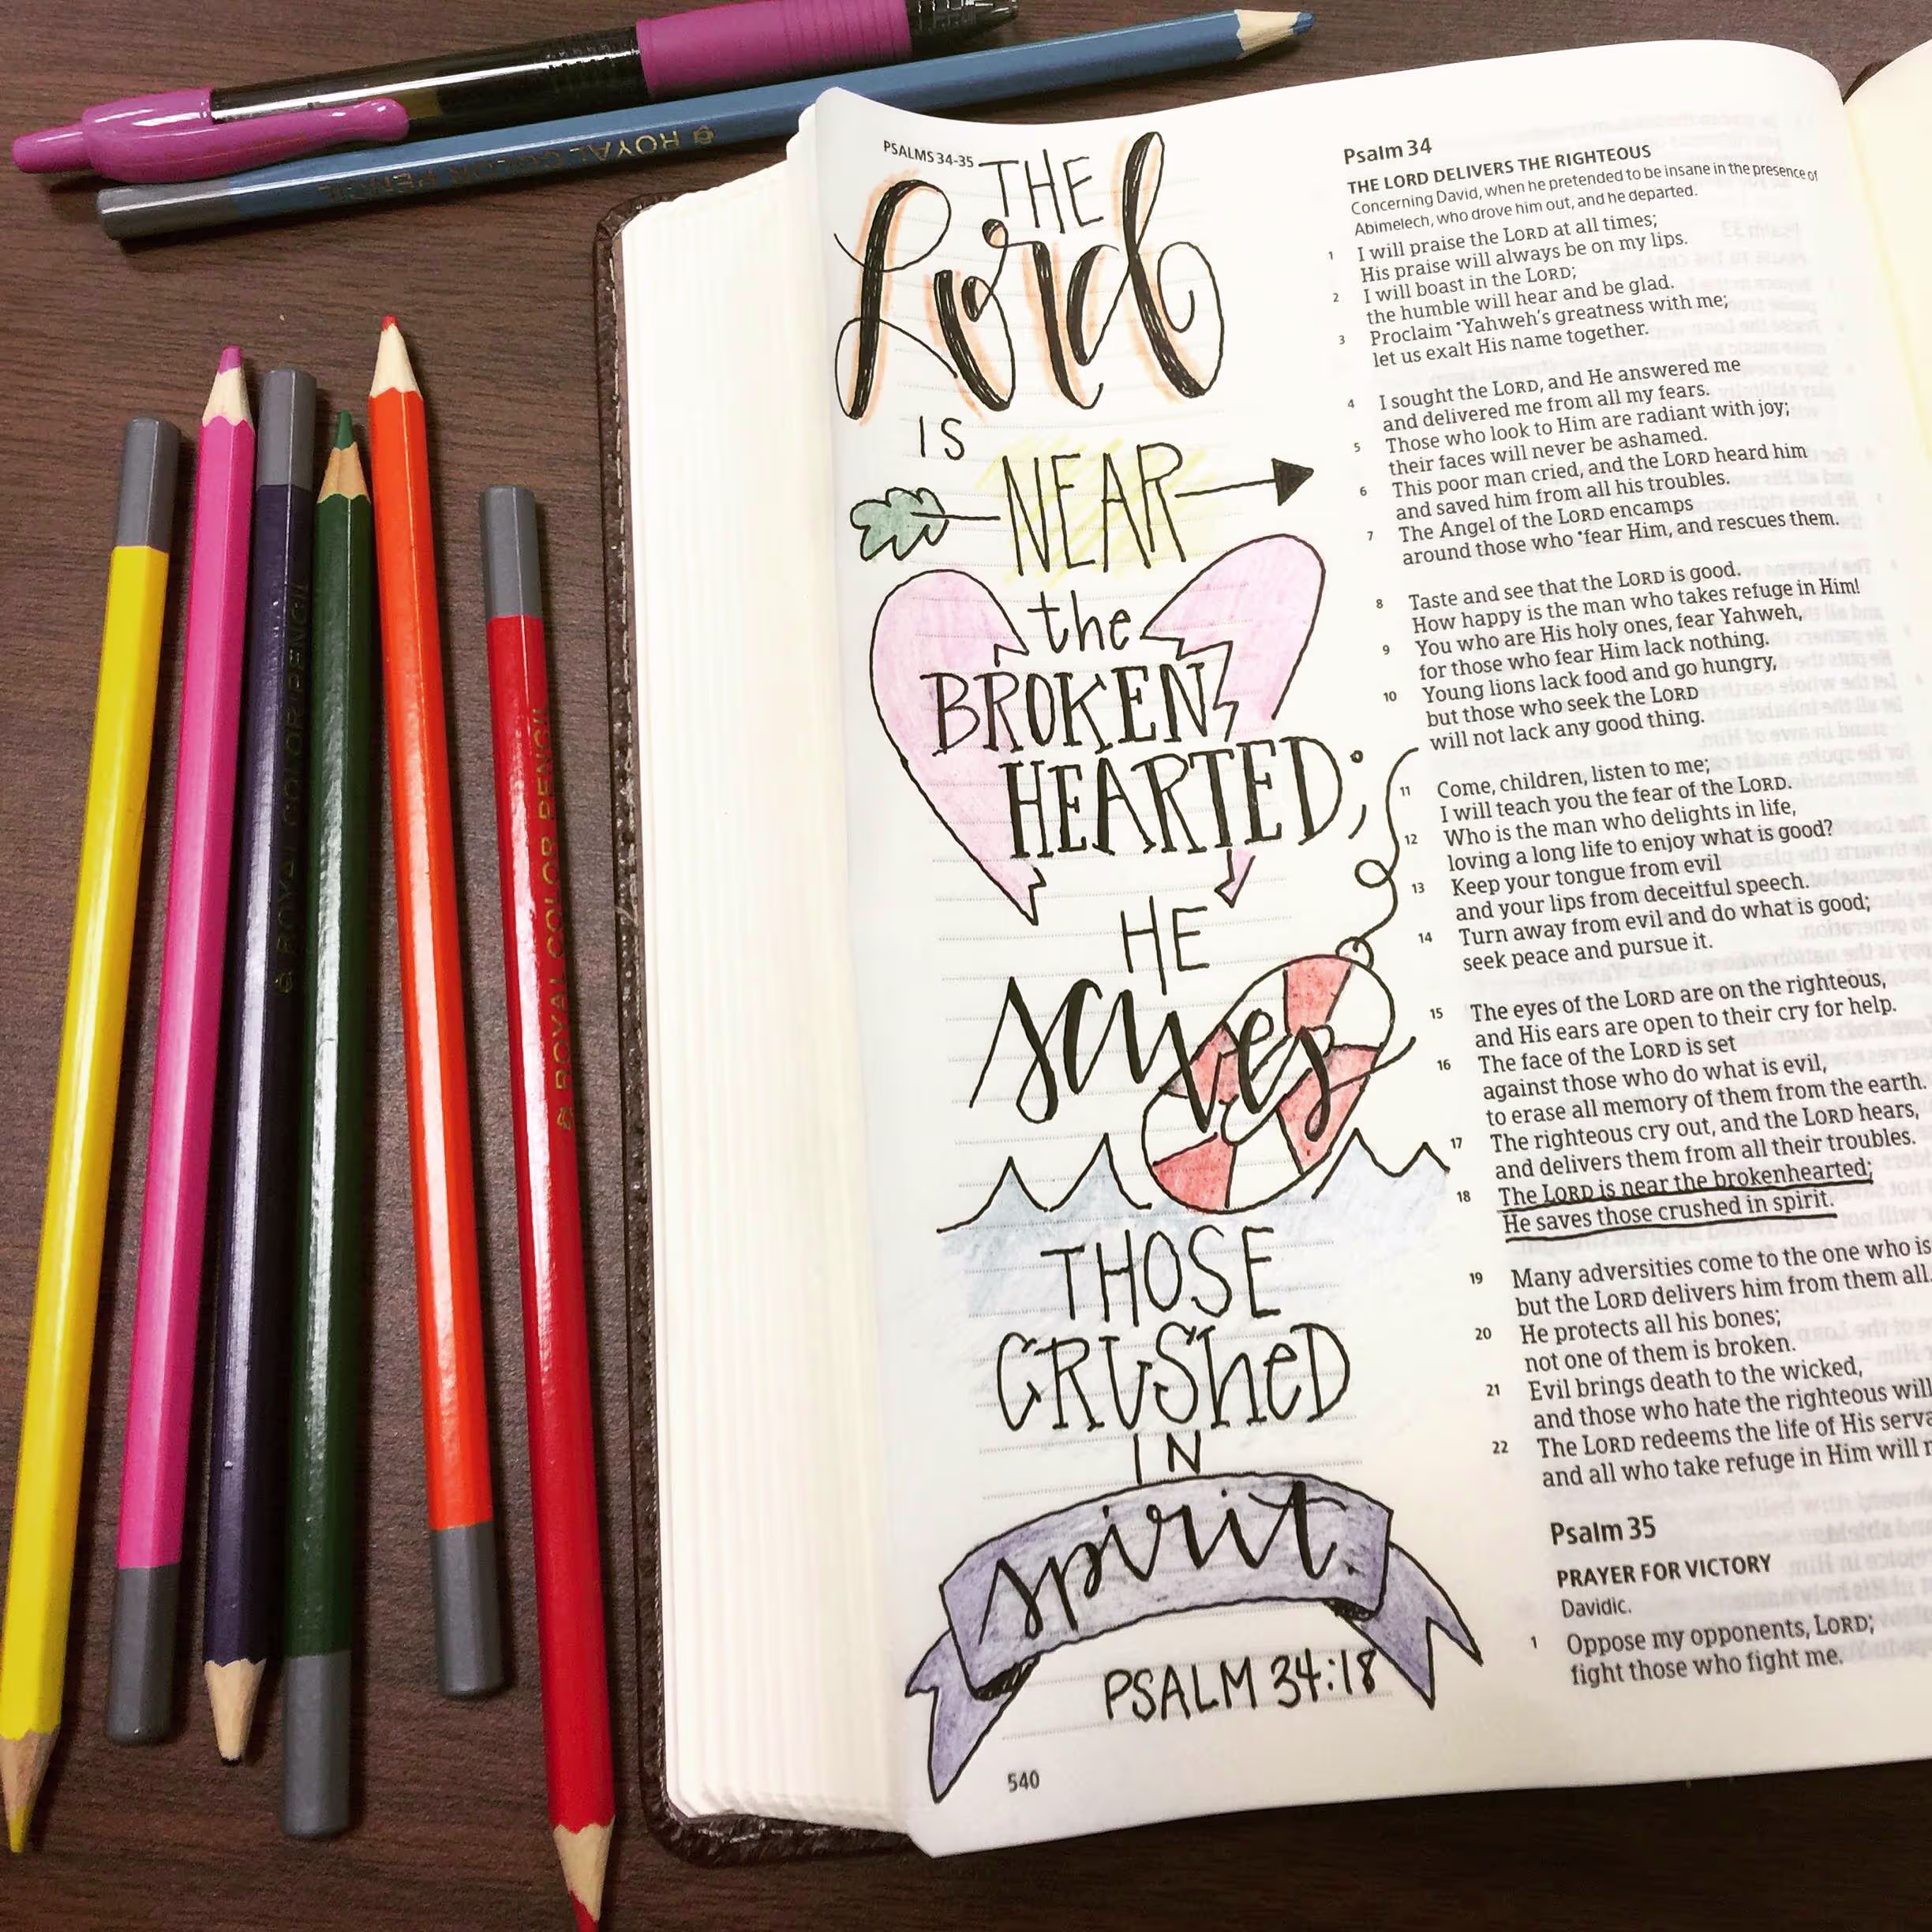 ROYAL COLOR PENCIL
ROYAL COLOR PENCIL
ROYAL COLOR PENCIL
PSALMS 34-35
THE
Lord
IS
NEAR
the
BROKEN
HEARTED;
HE
saves
THOSE
CRUSHeD
IN
spirit.
PSALM 34:18
540
Psalm 34
THE LORD DELIVERS THE RIGHTEOUS
Concerning David, when he pretended to be insane in the presence of
Abimelech, who drove him out, and he departed.
1 I will praise the LORD at all times;
His praise will always be on my lips.
2 I will boast in the LORD;
the humble will hear and be glad.
3 Proclaim •Yahweh's greatness with me;
let us exalt His name together.
4 I sought the LORD, and He answered me
and delivered me from all my fears.
5 Those who look to Him are radiant with joy;
their faces will never be ashamed.
6 This poor man cried, and the LORD heard him
and saved him from all his troubles.
7 The Angel of the LORD encamps
around those who •fear Him, and rescues them.
8 Taste and see that the LORD is good.
How happy is the man who takes refuge in Him!
9 You who are His holy ones, fear Yahweh,
for those who fear Him lack nothing.
10 Young lions lack food and go hungry,
but those who seek the LORD
will not lack any good thing.
11 Come, children, listen to me;
I will teach you the fear of the LORD.
12 Who is the man who delights in life,
loving a long life to enjoy what is good?
13 Keep your tongue from evil
and your lips from deceitful speech.
14 Turn away from evil and do what is good;
seek peace and pursue it.
15 The eyes of the LORD are on the righteous,
and His ears are open to their cry for help.
16 The face of the LORD is set
against those who do what is evil,
to erase all memory of them from the earth.
17 The righteous cry out, and the LORD hears,
and delivers them from all their troubles.
18 The LORD is near the brokenhearted;
He saves those crushed in spirit.
19 Many adversities come to the one who is
but the LORD delivers him from them all.
20 He protects all his bones;
not one of them is broken.
21 Evil brings death to the wicked,
and those who hate the righteous will
22 The LORD redeems the life of His serva
and all who take refuge in Him will
Psalm 35
PRAYER FOR VICTORY
Davidic.
1 Oppose my opponents, LORD;
fight those who fight me.